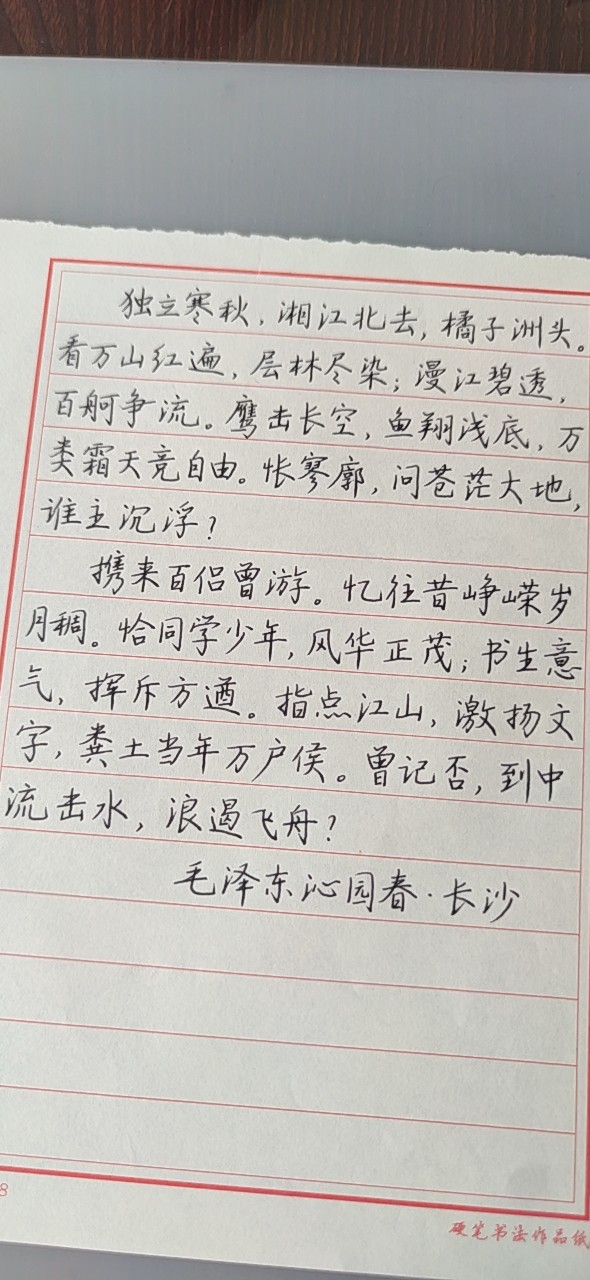 独立寒秋，湘江北去，橘子洲头。
看万山红遍，层林尽染；漫江碧透，
百舸争流。鹰击长空，鱼翔浅底，万
类霜天竞自由。怅寥廓，问苍茫大地，
谁主沉浮？
携来百侣曾游。忆往昔峥嵘岁
月稠。恰同学少年，风华正茂；书生意
气，挥斥方遒。指点江山，激扬文
字，粪土当年万户侯。曾记否，到中
流击水，浪遏飞舟？
毛泽东沁园春·长沙
8
硬笔书法作品纸